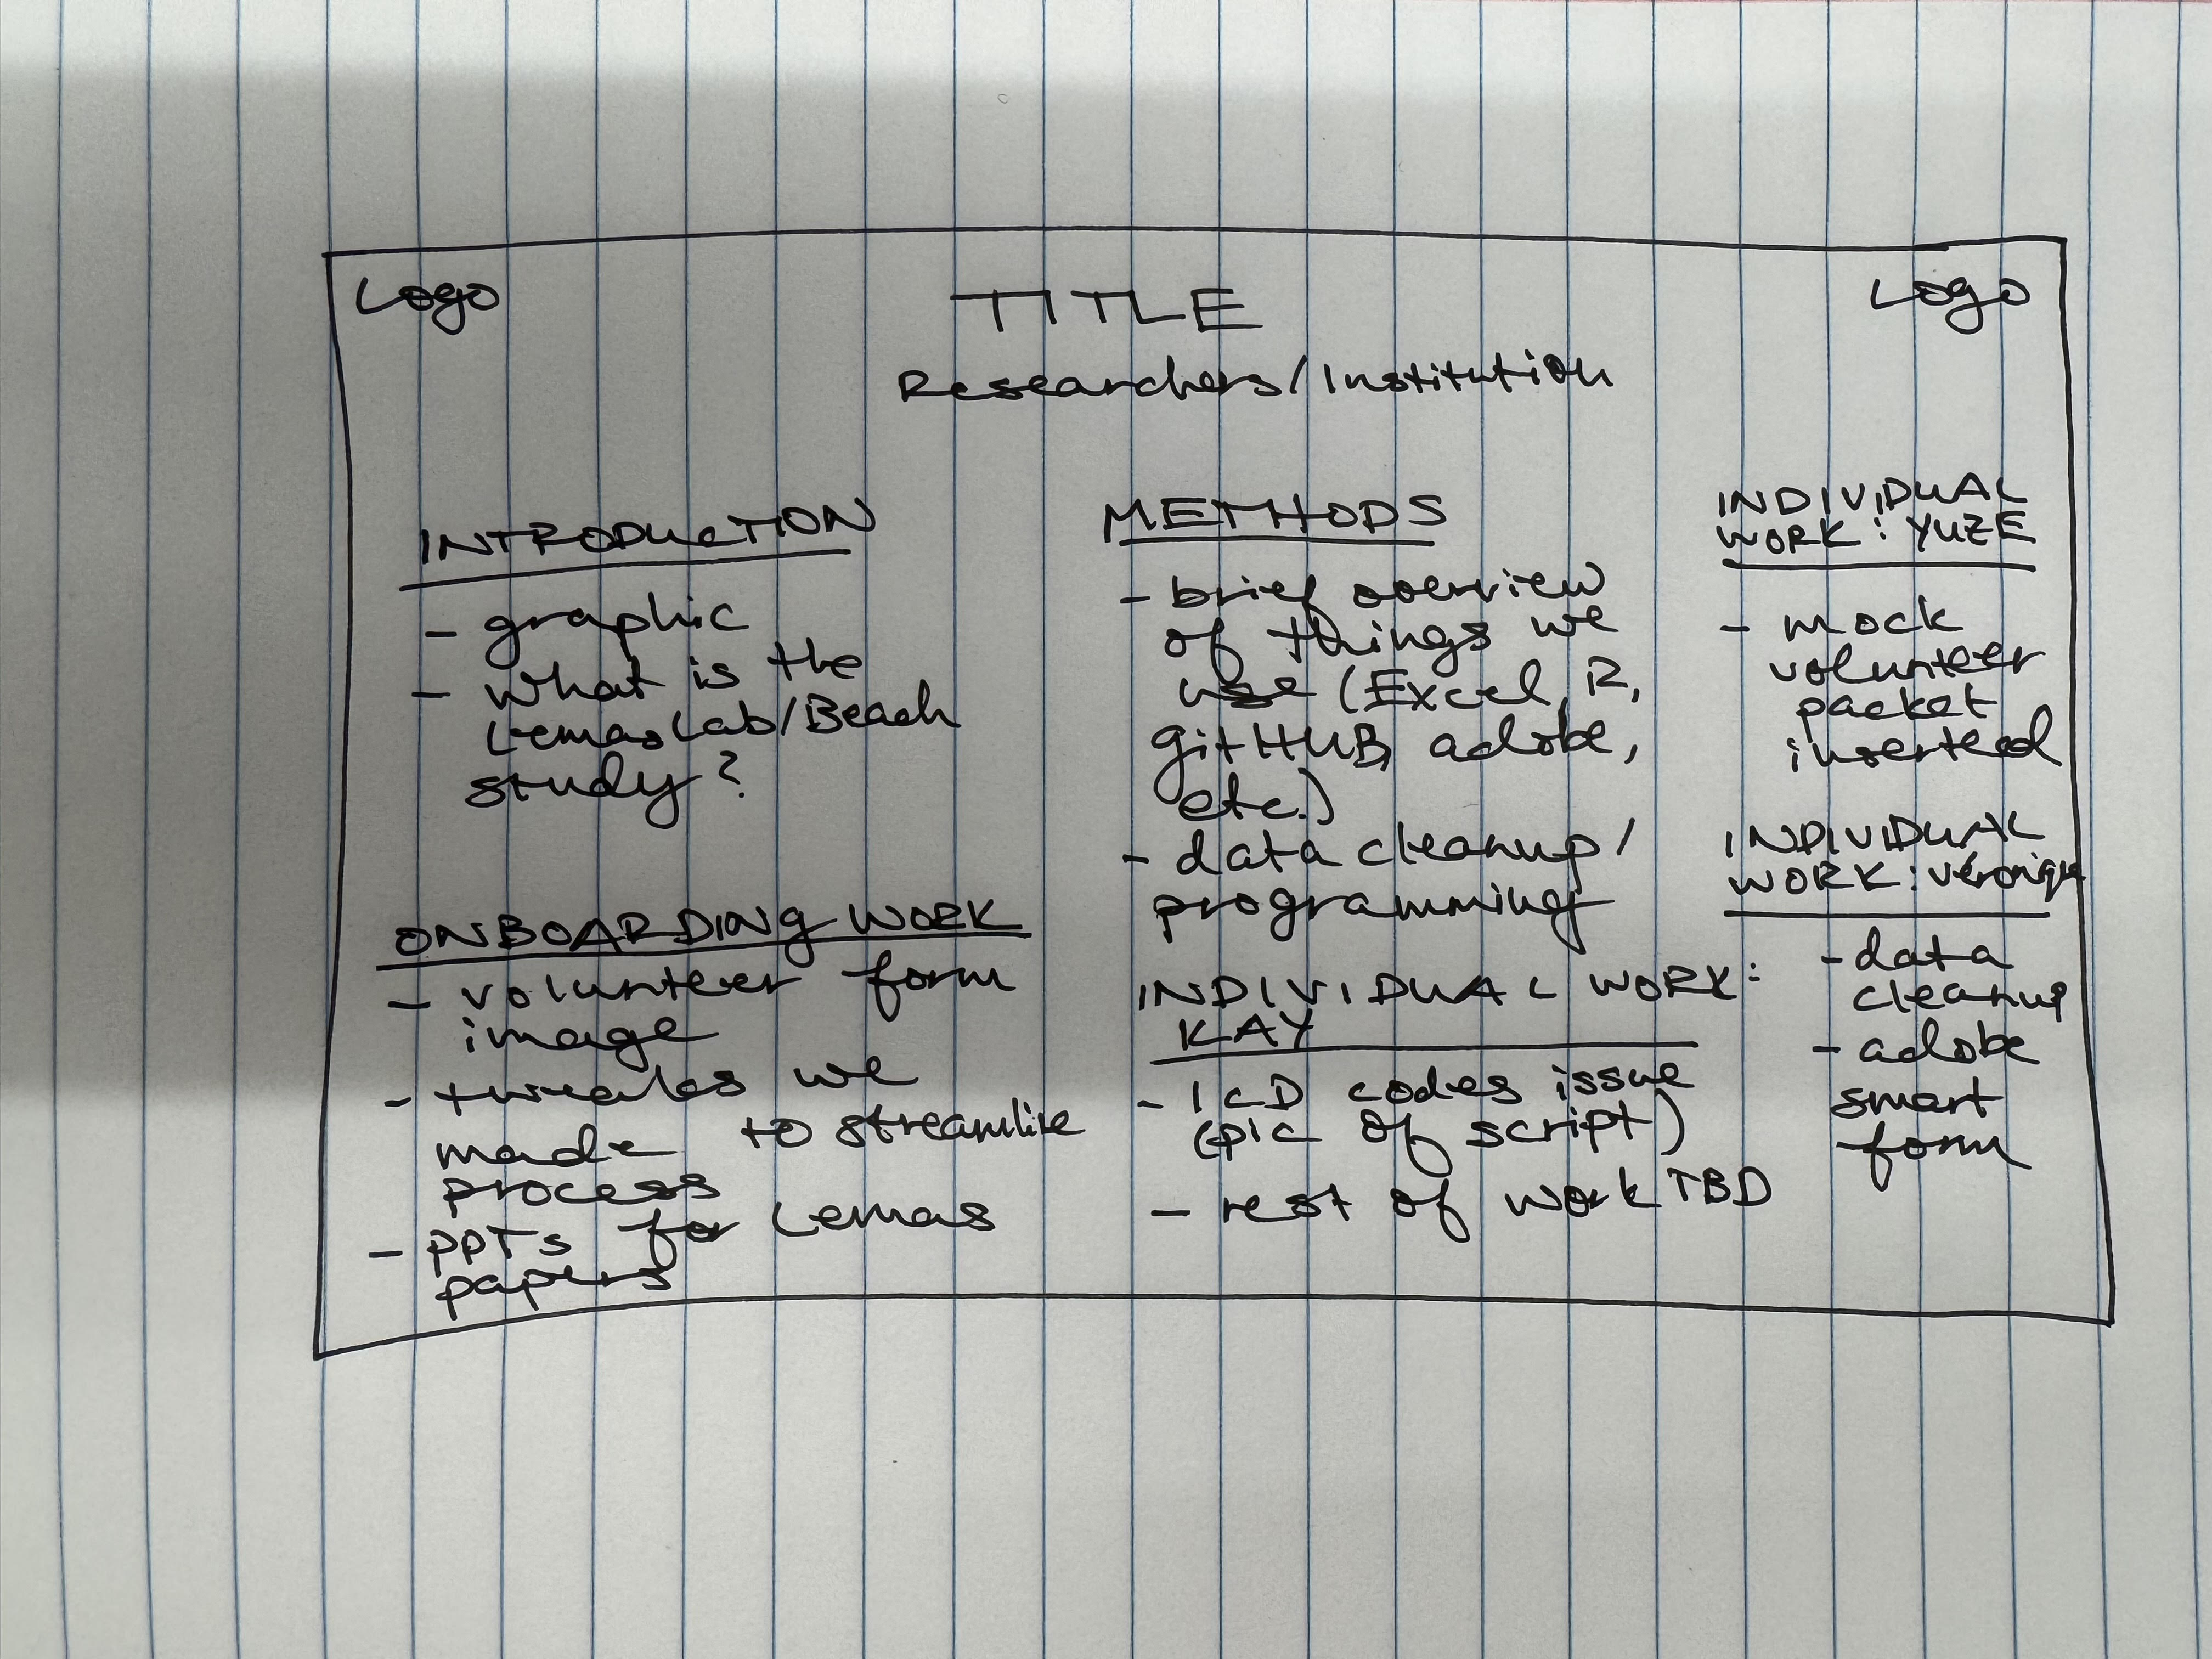 Logo
TITLE
Logo
Researchers/Institution
INTRODUCTION
- graphic
- what is the
Lemas Lab/Beach
study?
ONBOARDING WORK
- volunteer form
image
- tweaks we
made to streamline
process
- PPTs for Lemas
papers
METHODS
- brief overview
of things we
use (Excel, R,
gitHUB, adobe,
etc.)
- data cleanup/
programming
INDIVIDUAL WORK:
KAY
- ICD codes issue
(pic of script)
- rest of work TBD
INDIVIDUAL
WORK: YUZE
- mock
volunteer
packet
inserted
INDIVIDUAL
WORK: Véronique
- data
cleanup
- adobe
smart
form